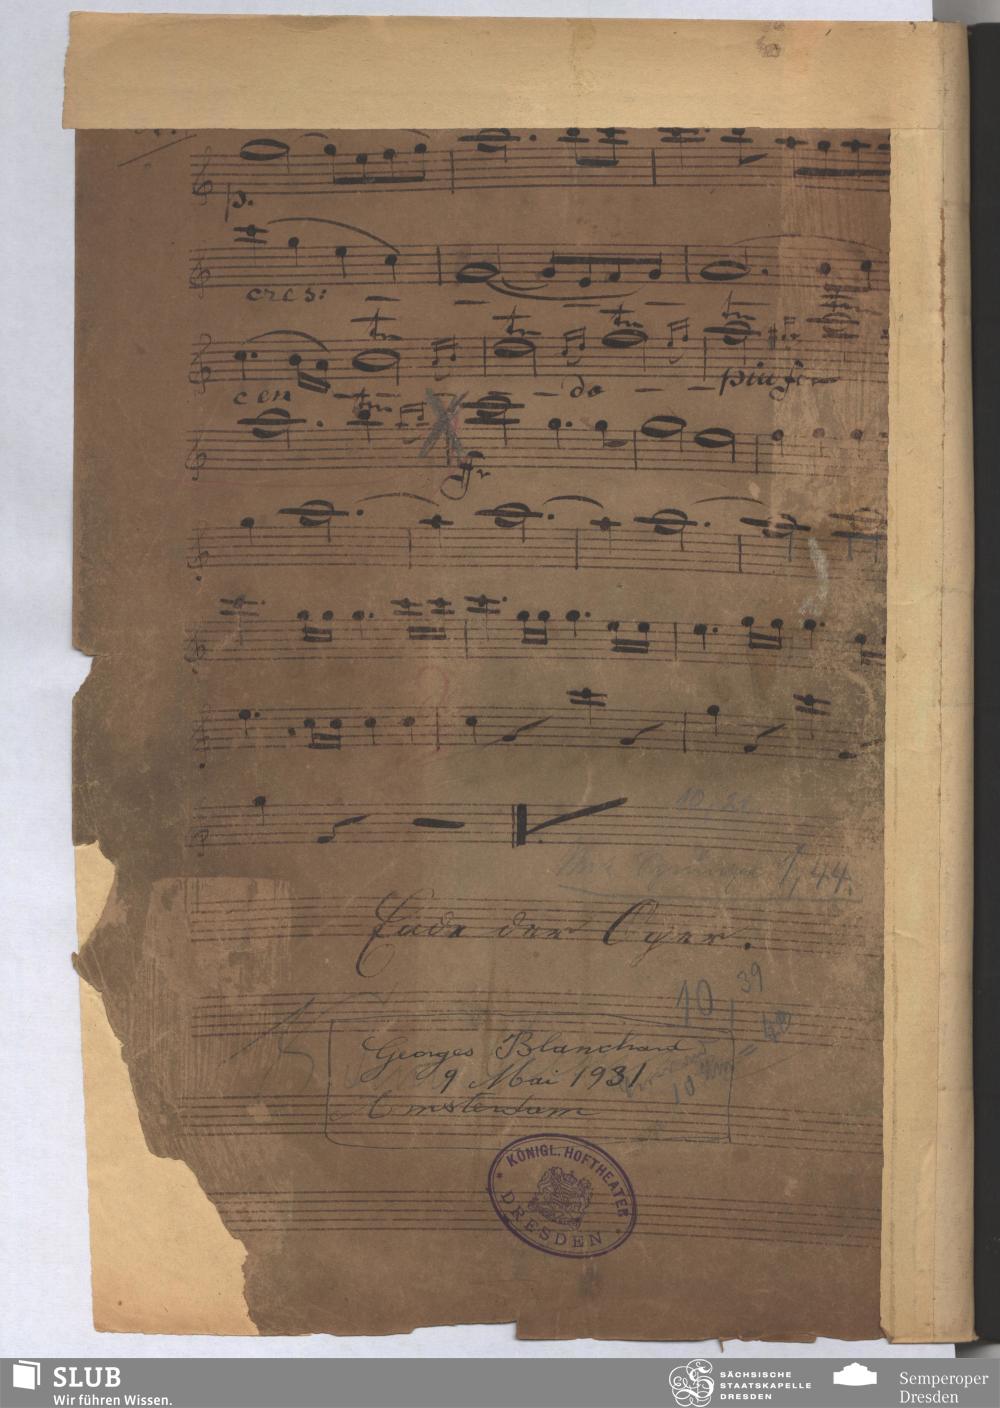 p.
cres:
tr tr tr tr
cen - do - piu for
tr
f
Ende der Oper.
10 39
Georges Blanchard
9 Mai 1931
Amsterdam
KÖNIGL. HOFTHEATER
DRESDEN
SLUB
Wir führen Wissen.
SÄCHSISCHE
STAATSKAPELLE
DRESDEN
Semperoper
Dresden